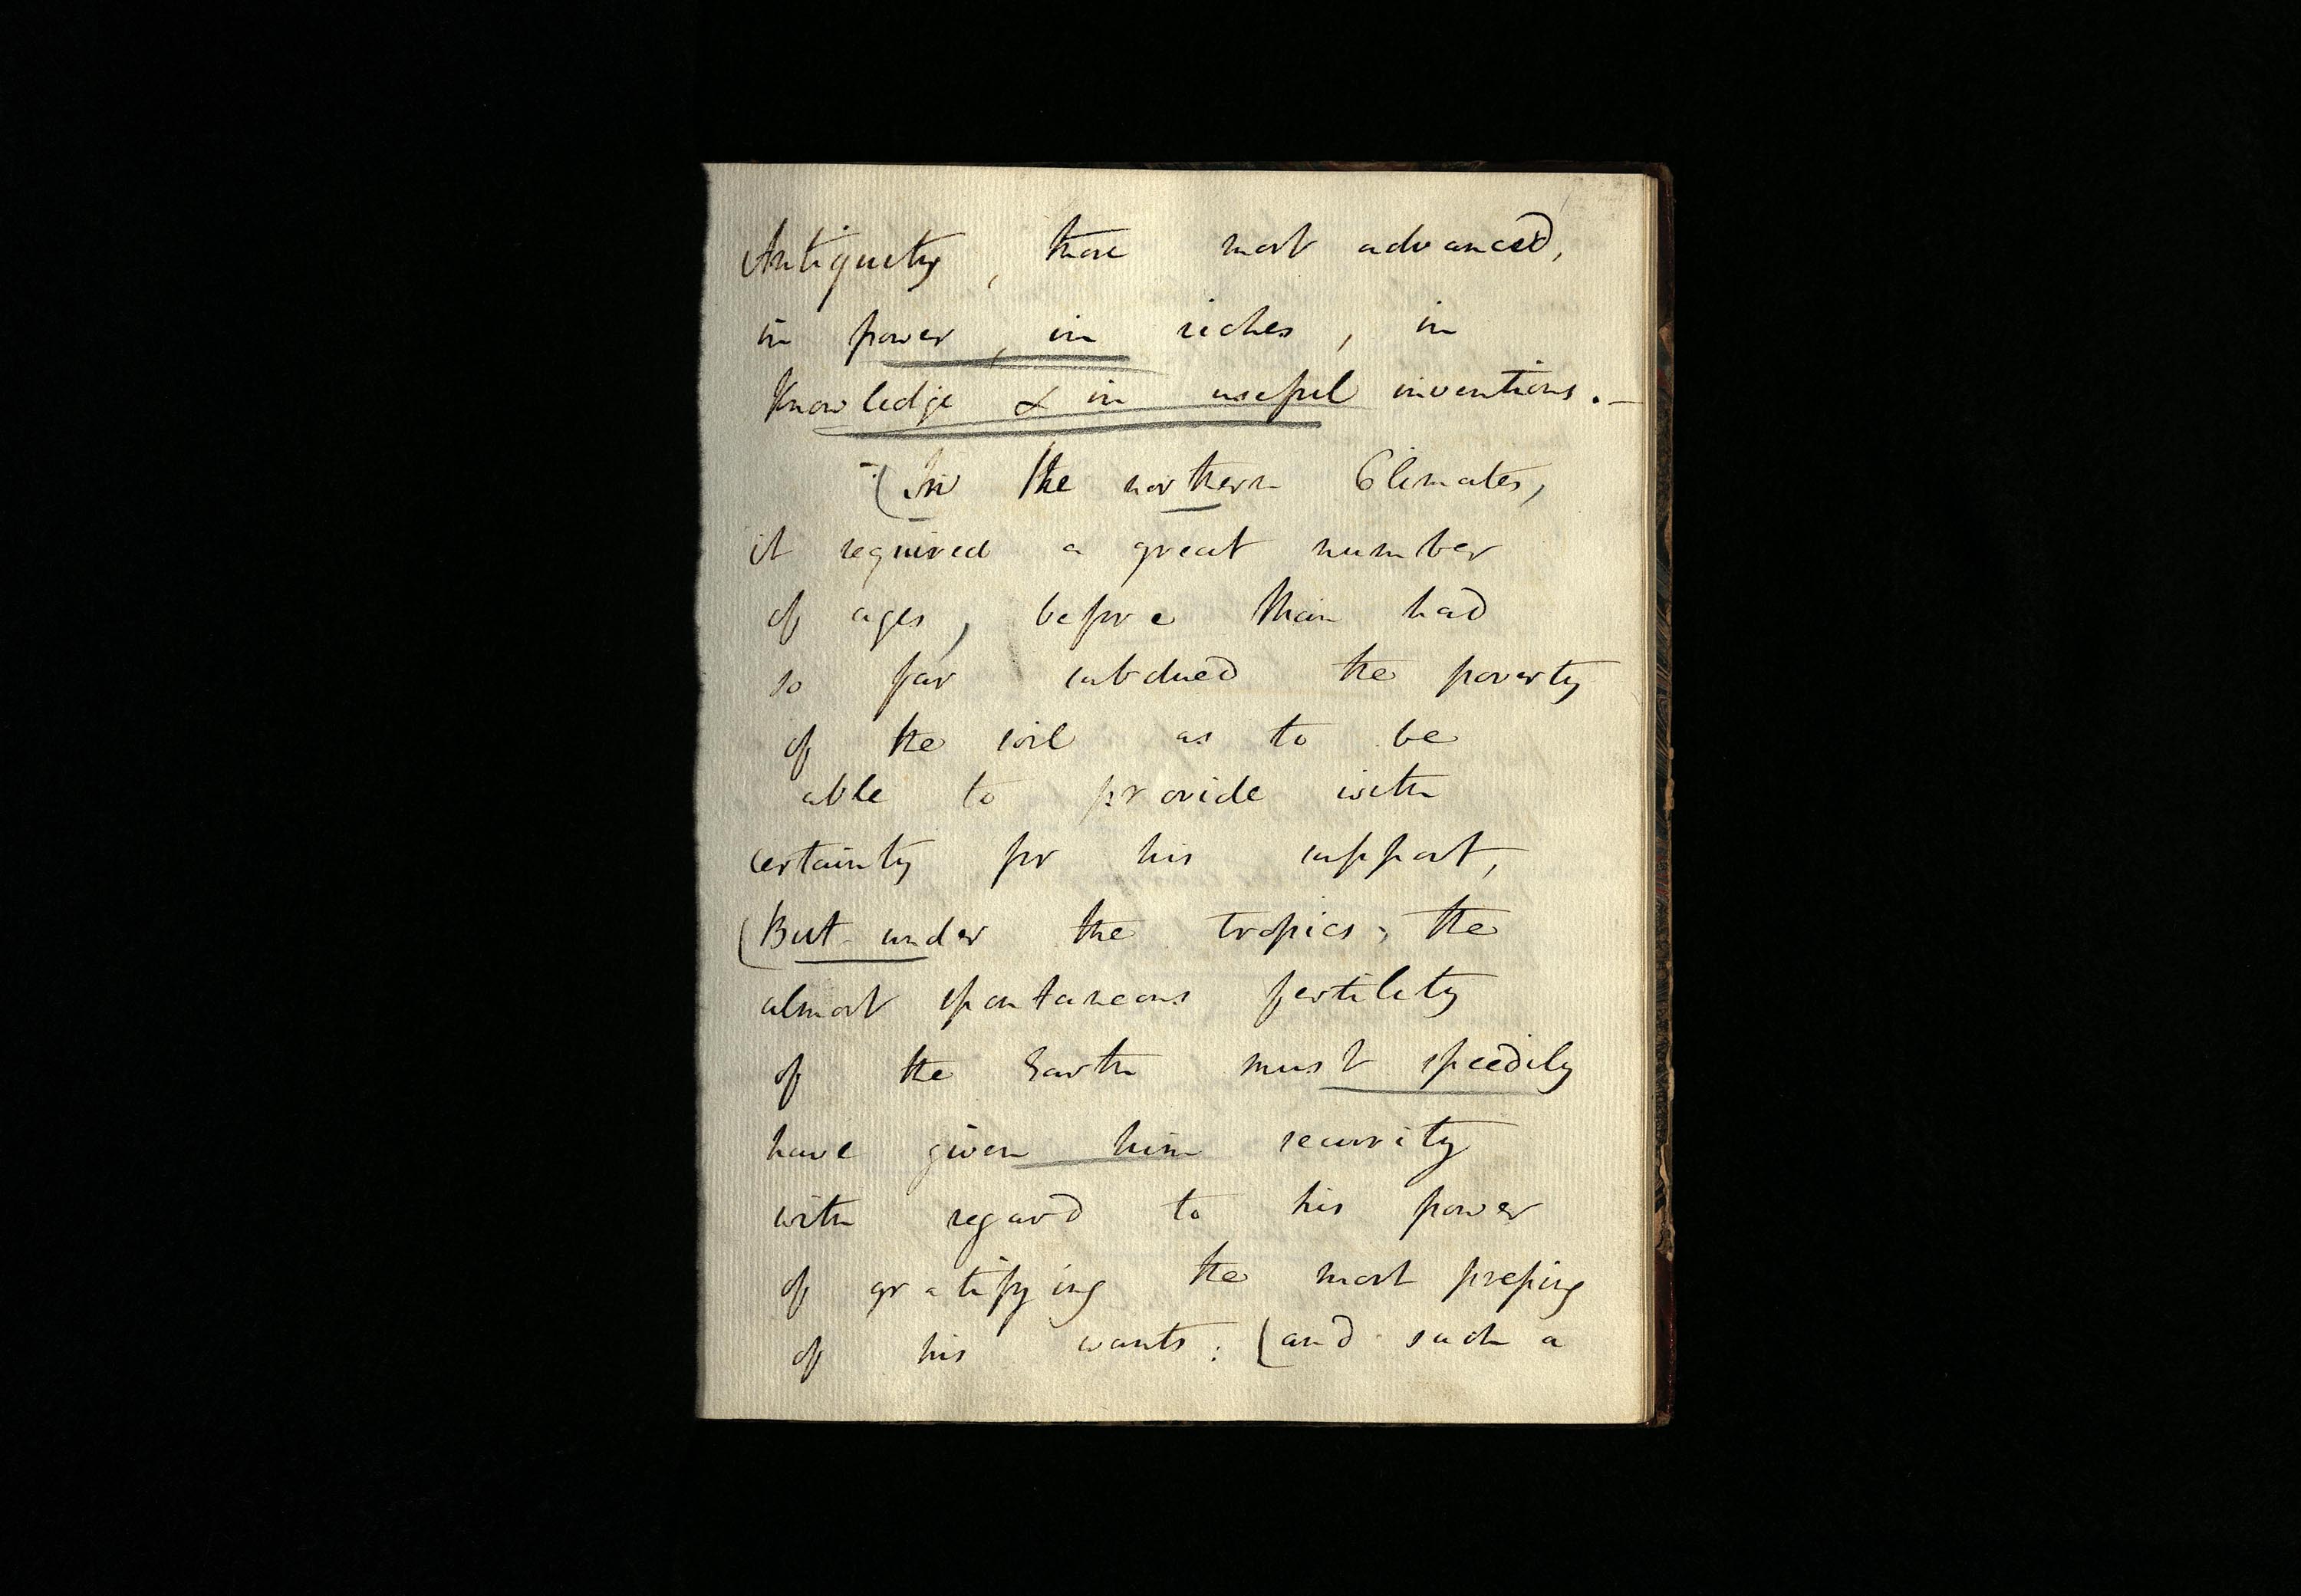 Antiquity, those most advanced,
in power, in riches, in
Knowledge & in useful inventions.—
—(In the northern Climates,
it required a great number
of ages, before Man had
so far subdued the poverty
of the soil as to be
able to provide with
certainty for his support,
(But under the tropics, the
almost spontaneous fertility
of the Earth must speedily
have given him security
with regard to his power
of gratifying the most pressing
of his wants: (and such a